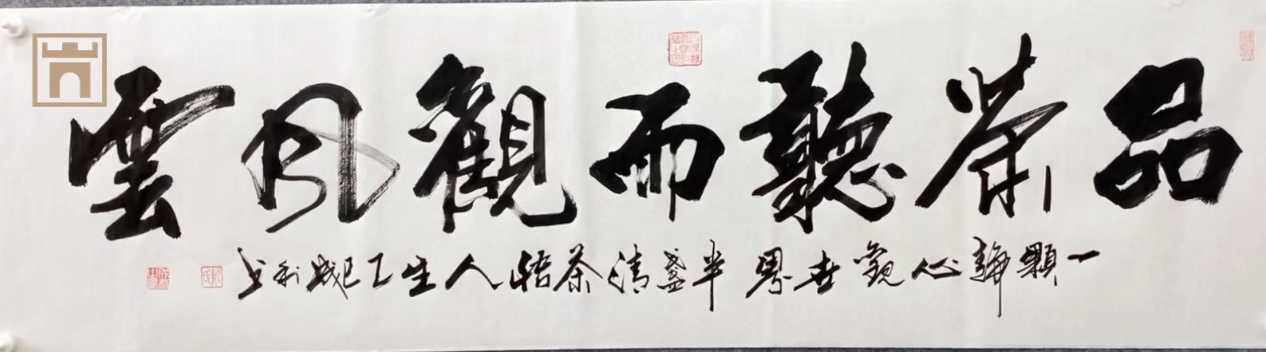 品茶聽雨觀風雲
一顆靜心觀世界 半盞清茶悟人生 乙巳